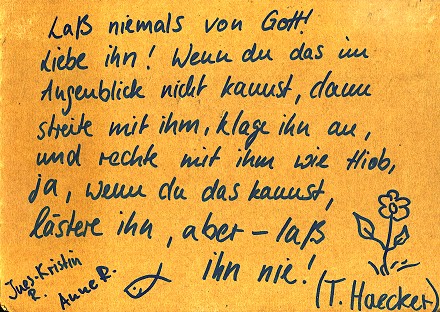 Laß niemals von Gott!
Liebe ihn! Wenn du das im
Augenblick nicht kannst, dann
streite mit ihm, klage ihn an,
und rechte mit ihm wie Hiob,
ja, wenn du das kannst,
lästere ihn, aber – laß
ihn nie!
(T. Haecker)
Ines-Kristin
R.
Anne R.